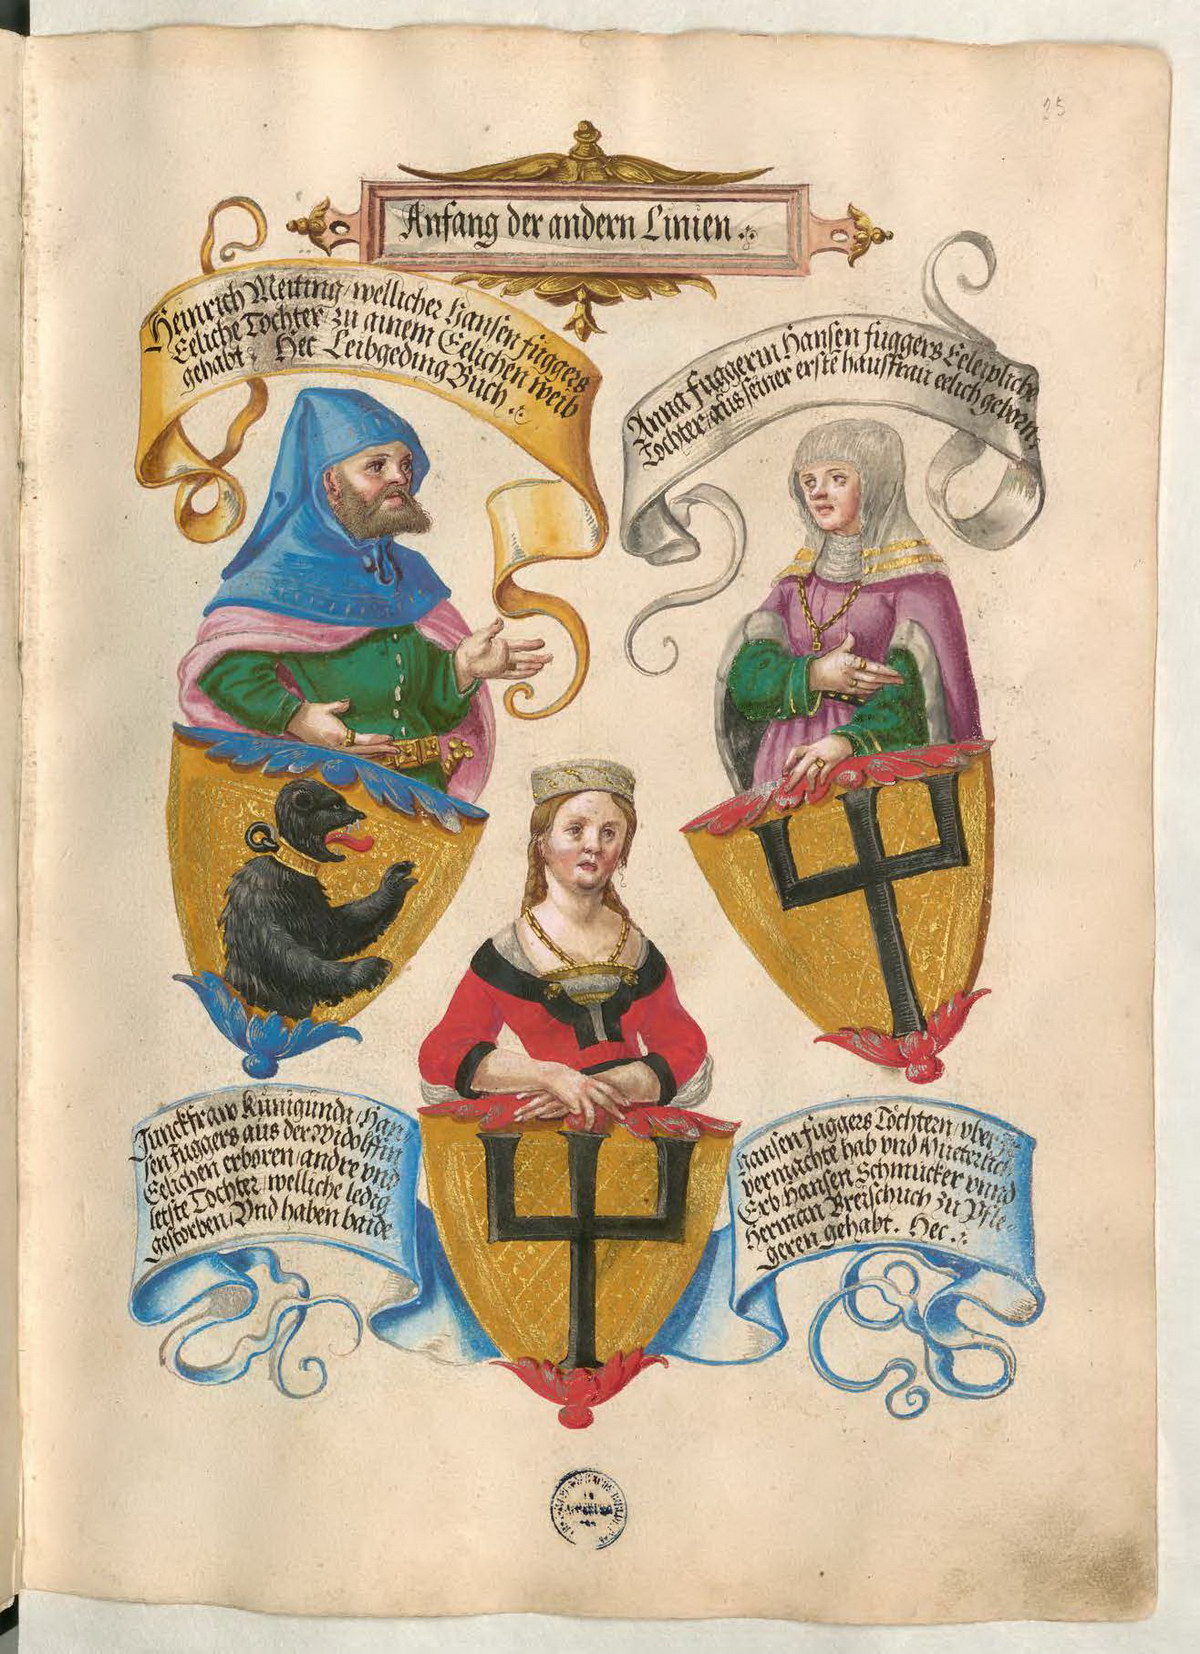 25
Anfang der andern Linien
Heinrich Meiting / wellicher Hansen fuggers
Eeliche Tochter / zu ainem Eelichen weib
gehabt / Hec Leibgeding Buch
Anna fuggerin Hansen fuggers Eeleipliche
Tochter / aus seiner erste hausfrau eelich geborn
Junckfraw Kunigunda Han
sen fuggers aus der Widolffin
Eelichen erboren / andre vnd
letste Tochter / welliche ledig
gestorben / Vnd haben baide
Hansen fuggers Tochtern / vber
vermachte hab vnd Mueterlich
Erb Hansen Schmucker vnnd
Herman Breischuch zu Pfle-
geren gehabt. Hec.